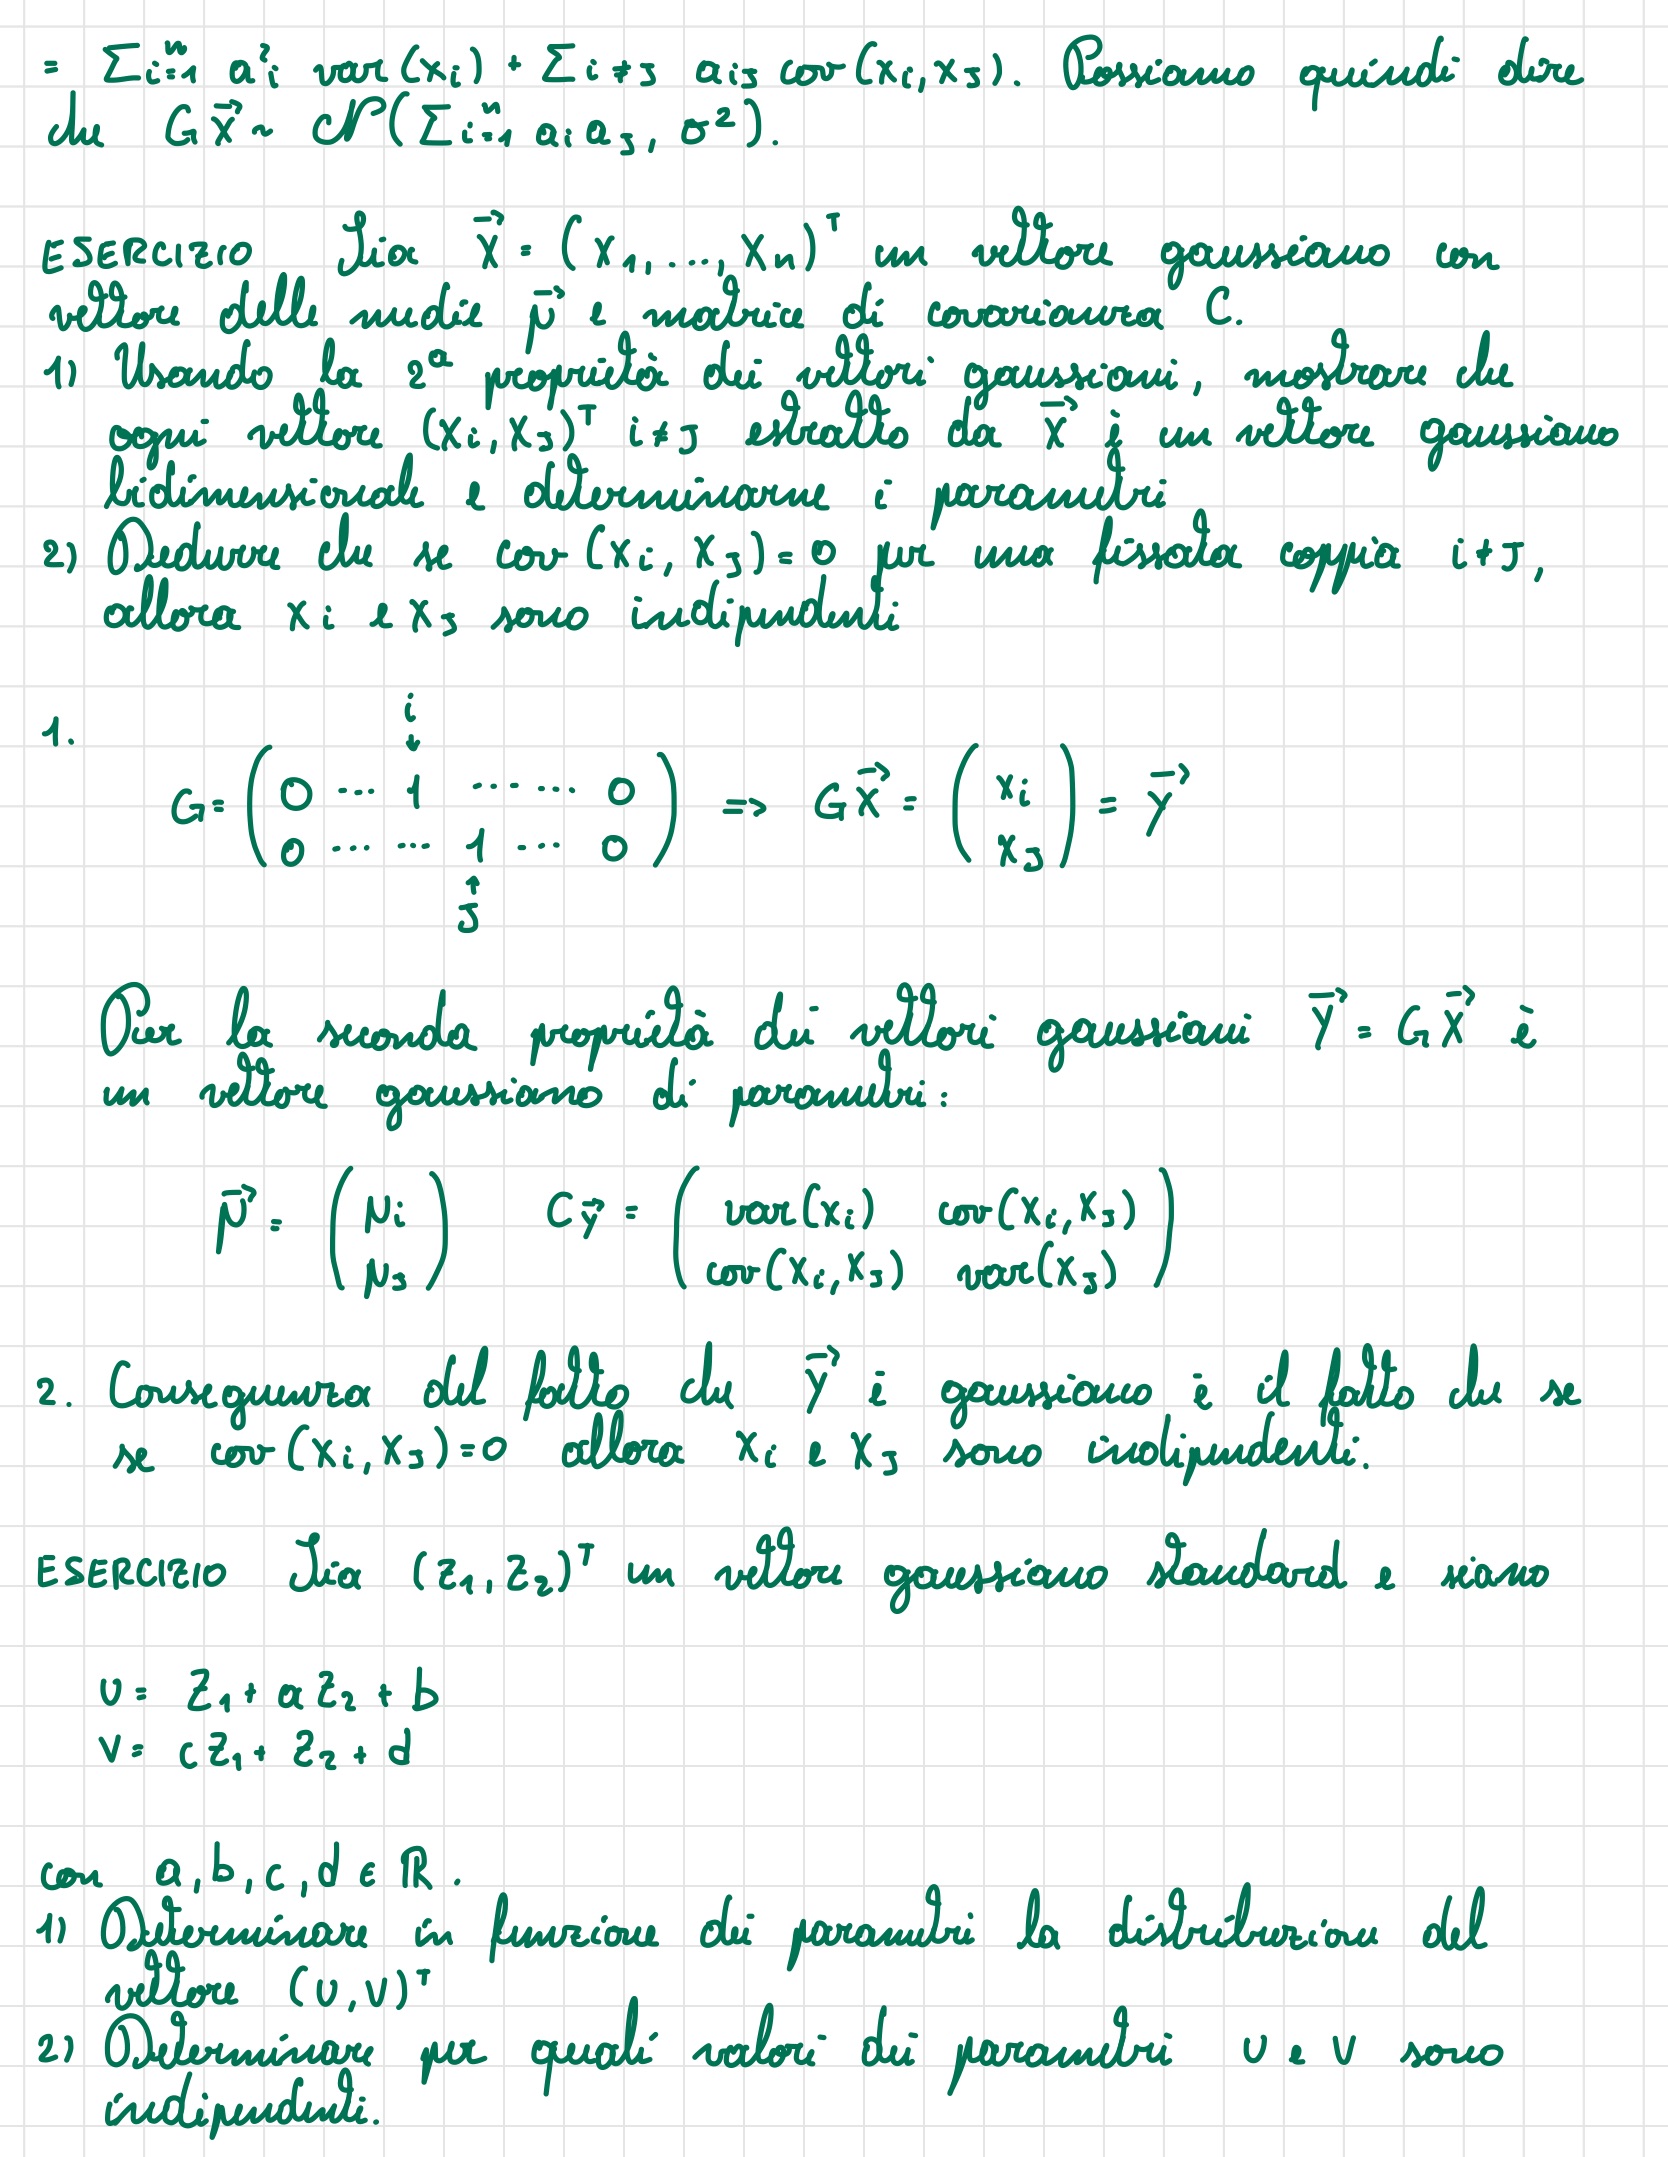 = Σ i=1^n a²i var(xi) + Σ i≠J aiJ cov(xi,xJ). Possiamo quindi dire
che GX⃗ ~ N(Σ i=1^n ai aJ, σ²).
ESERCIZIO Sia X⃗ = (X₁,...,Xn)ᵀ un vettore gaussiano con
vettore delle medie μ⃗ e matrice di covarianza C.
1) Usando la 2ª proprietà dei vettori gaussiani, mostrare che
ogni vettore (Xi,XJ)ᵀ i≠J estratto da X⃗ è un vettore gaussiano
bidimensionale e determinarne i parametri
2) Dedurre che se cov(Xi, XJ)=0 per una fissata coppia i≠J,
allora Xi e XJ sono indipendenti
i
1.
↓
G= (0 ... 1 ....... 0) ⇒ GX⃗ = (xi) = Y⃗
(0 ... ... 1 ... 0) (xJ)
↑
J
Per la seconda proprietà dei vettori gaussiani Y⃗ = GX⃗ è
un vettore gaussiano di parametri:
μ⃗ = (μi) C Y⃗ = (var(xi) cov(xi,xJ))
(μJ) (cov(xi,xJ) var(xJ))
2. Conseguenza del fatto che Y⃗ è gaussiano è il fatto che se
se cov(xi,xJ)=0 allora xi e xJ sono indipendenti.
ESERCIZIO Sia (Z₁,Z₂)ᵀ un vettore gaussiano standard e siano
U= Z₁+ aZ₂ + b
V= cZ₁+ Z₂ + d
con a,b,c,d ∈ ℝ.
1) Determinare in funzione dei parametri la distribuzione del
vettore (U,V)ᵀ
2) Determinare per quali valori dei parametri U e V sono
indipendenti.